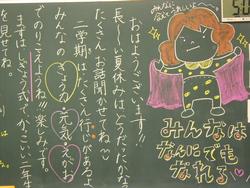 おはようございます!!
長〜い夏休みはどうだったかな?
たくさんお話聞かせてね♡
二学期はたくさん行事があるよ
みんなの きょう力 元気・えがお
でのりこえようね!!楽しみです。
まずはしぎょう式!!かっこいい二年
を見せてね。
みんなは
なんにでも
なれる♡